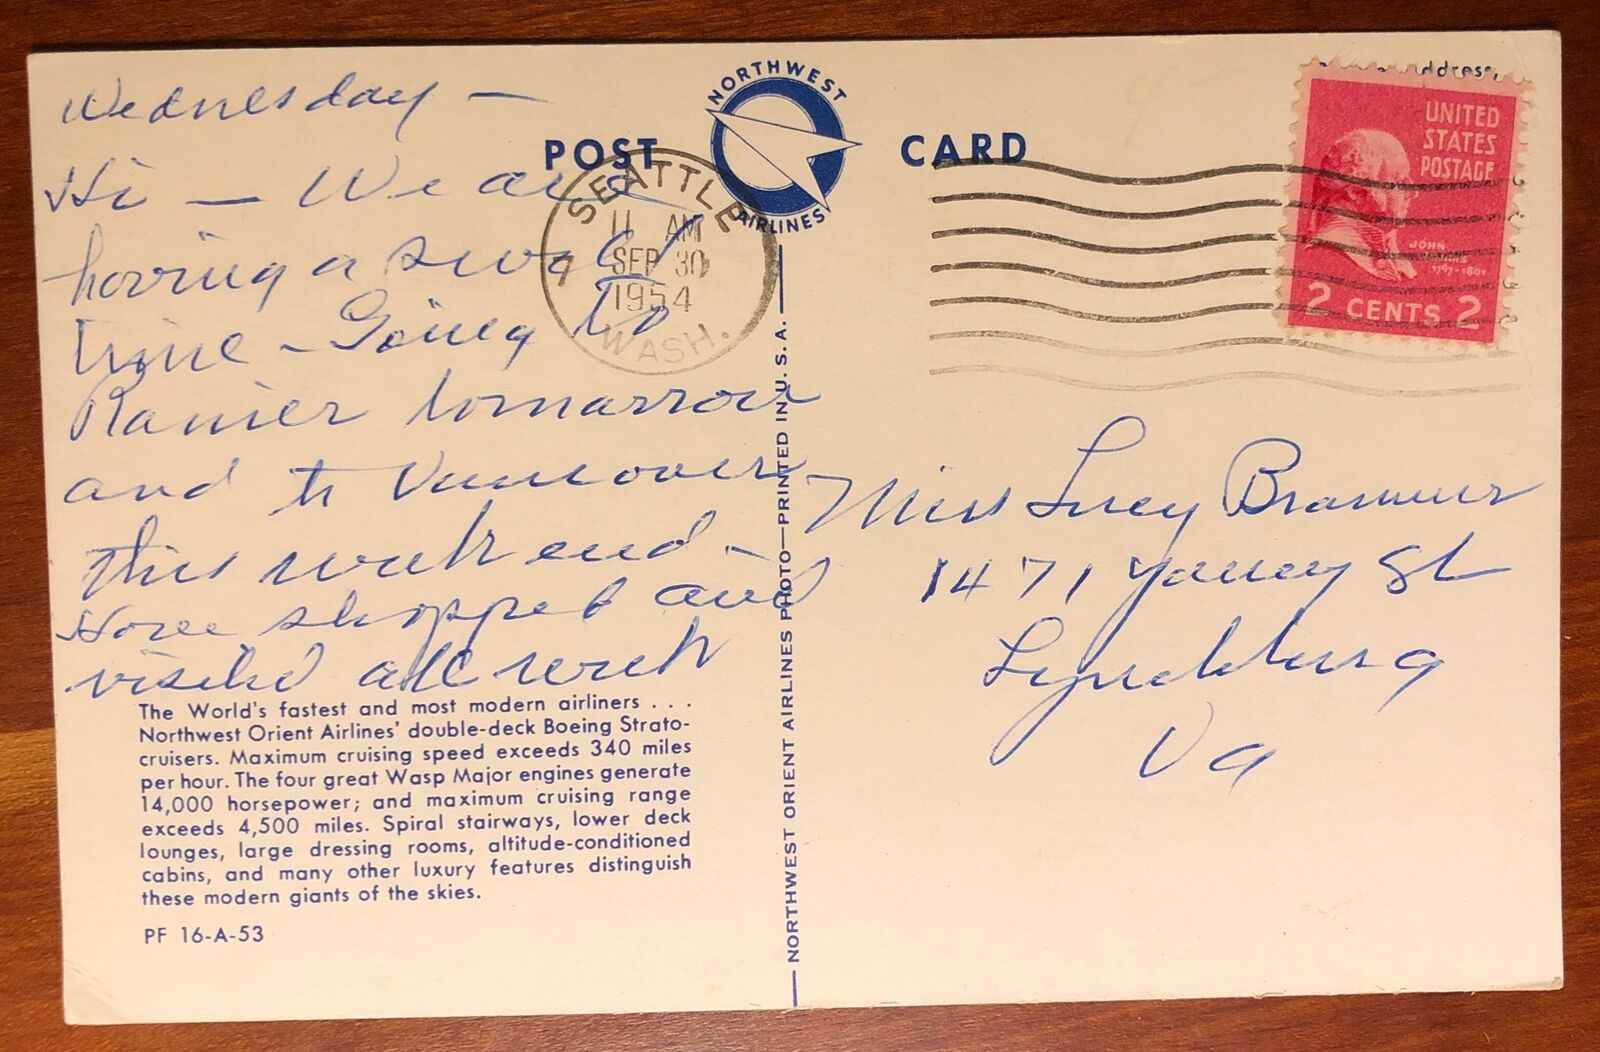 Wednesday —
Hi — We are
having a swell
time – Going to
Ranier tomorrow
and to Vancouver
this week end –
Have shopped and
visited all week
The World's fastest and most modern airliners . . .
Northwest Orient Airlines' double-deck Boeing Strato-
cruisers. Maximum cruising speed exceeds 340 miles
per hour. The four great Wasp Major engines generate
14,000 horsepower; and maximum cruising range
exceeds 4,500 miles. Spiral stairways, lower deck
lounges, large dressing rooms, altitude-conditioned
cabins, and many other luxury features distinguish
these modern giants of the skies.
PF 16-A-53
POST CARD
NORTHWEST
AIRLINES
SEATTLE
11 AM
SEP 30
1954
WASH.
NORTHWEST ORIENT AIRLINES PHOTO—PRINTED IN U. S. A.
UNITED
STATES
POSTAGE
JOHN
1797-1801
2 CENTS 2
Miss Lucy
1471 Yancey St
Lynchburg
Va